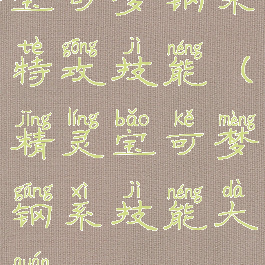 tè gōng jì néng
特攻技能（
jīng líng bǎo kě mèng
精灵宝可梦
gāng xì jì néng dà
钢系技能大